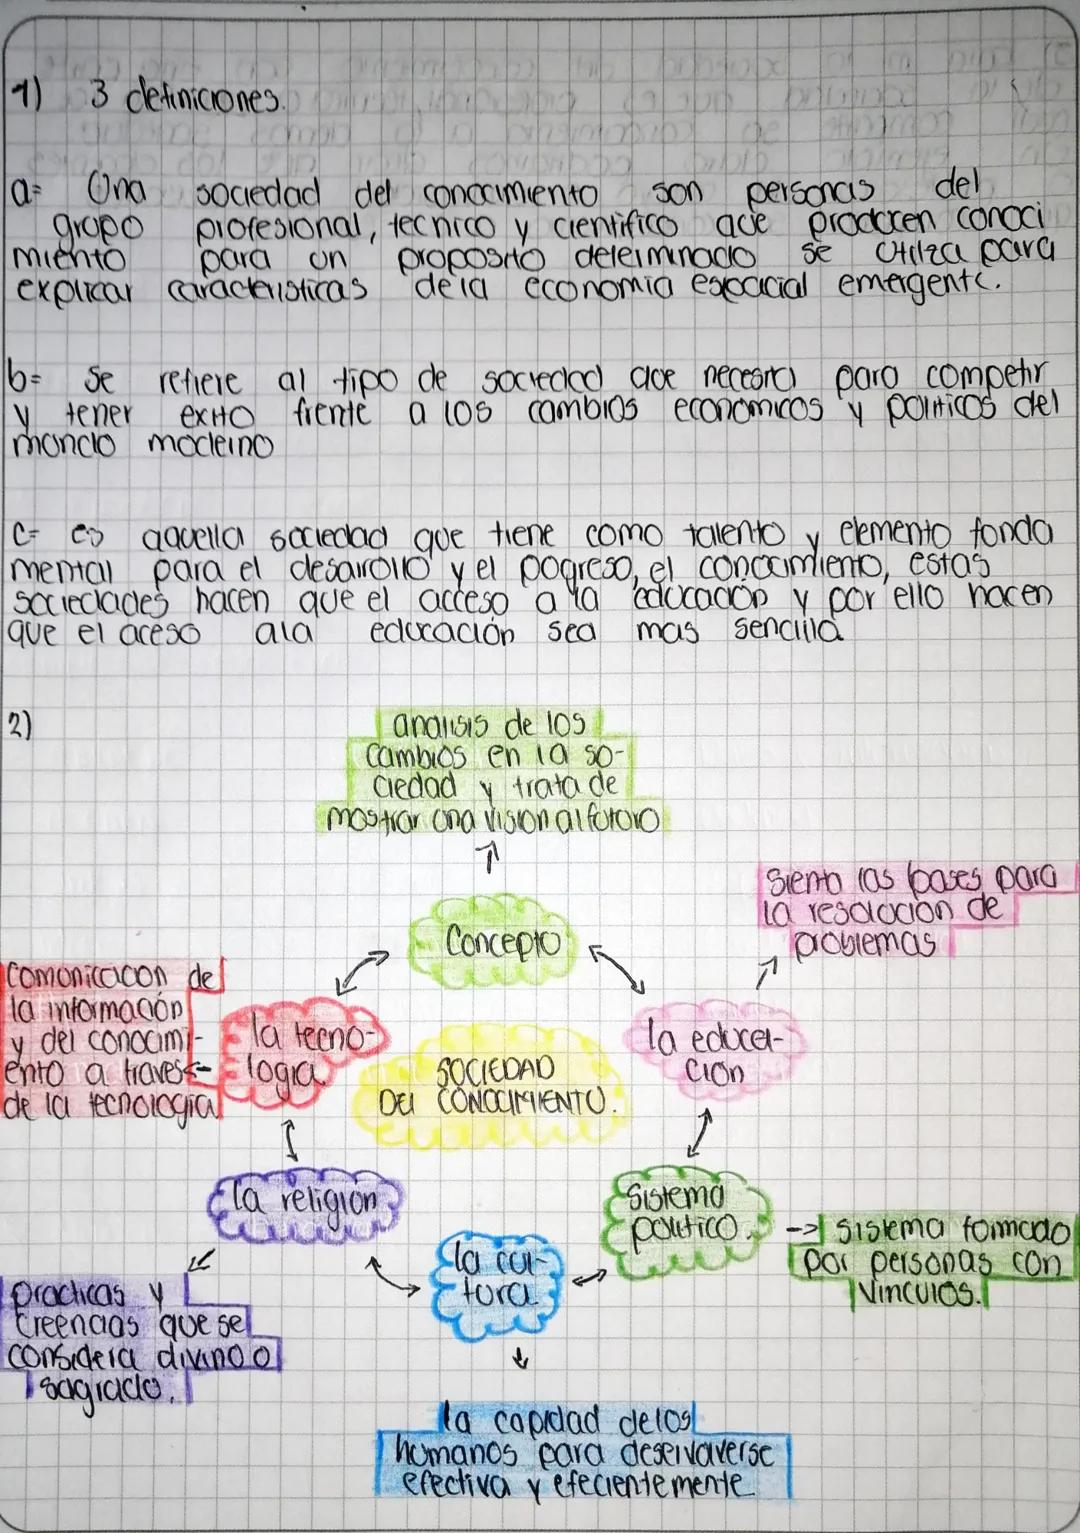 1) 3 definiciones.
a= Una sociedad del conocimiento son personas del
grupo profesional, tecnico y cientifico que producen conoci
miento para un proposito determinado se utiliza para
explicar caracteristicas dela economia espacial emergente.
b= se refiere al tipo de sociedad que necesita para competir
y tener exito frente a los cambios economicos y politicos del
mundo moderno
c= es aquella sociedad que tiene como talento y elemento funda
mental para el desarrollo y el pogreso, el conocimiento, estas
sociedades hacen que el acceso a la educación y por ello hacen
que el aceso ala educación sea mas sencilla
2)
analisis de los
cambios en la so-
ciedad y trata de
mostrar una vision al futuro
Concepto
sienta las bases para
la resolucion de
problemas
la educa-
cion
comunicacion de
la información
y del conocimi-
ento a traves
de la tecnologia
la tecno-
logia
SOCIEDAD
DEL CONOCIMIENTO.
la religion
Sistema
politico.
sistema formado
por personas con
vinculos.
la cul-
tura
practicas y
creencias que se
considera divino o
sagrado.
la capidad delos
humanos para
efectiva y efecientemente